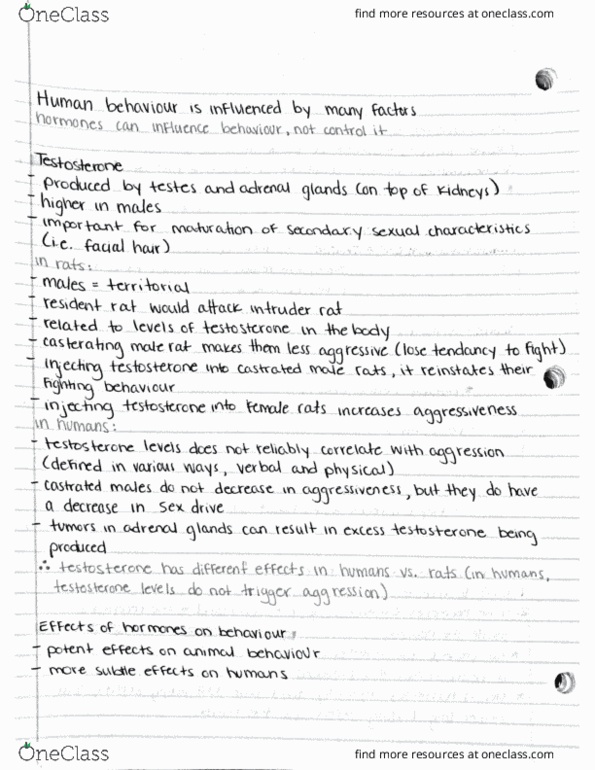 OneClass
find more resources at oneclass.com
Human behaviour is influenced by many factors
hormones can influence behaviour, not control it
Testosterone
- produced by testes and adrenal glands (on top of kidneys)
- higher in males
- important for maturation of secondary sexual characteristics
(i.e. facial hair)
in rats:
- males = territorial
- resident rat would attack intruder rat
- related to levels of testosterone in the body
- casterating male rat makes them less aggressive (lose tendancy to fight)
- injecting testosterone into castrated male rats, it reinstates their
fighting behaviour
- injecting testosterone into female rats increases aggressiveness
in humans:
- testosterone levels does not reliably correlate with aggression
(defined in various ways, verbal and physical)
- castrated males do not decrease in aggressiveness, but they do have
a decrease in sex drive
- tumors in adrenal glands can result in excess testosterone being
produced
∴ testosterone has different effects in humans vs. rats (in humans,
testosterone levels do not trigger aggression)
Effects of hormones on behaviour:
- potent effects on animal behaviour
- more subtle effects on humans
OneClass
find more resources at oneclass.com